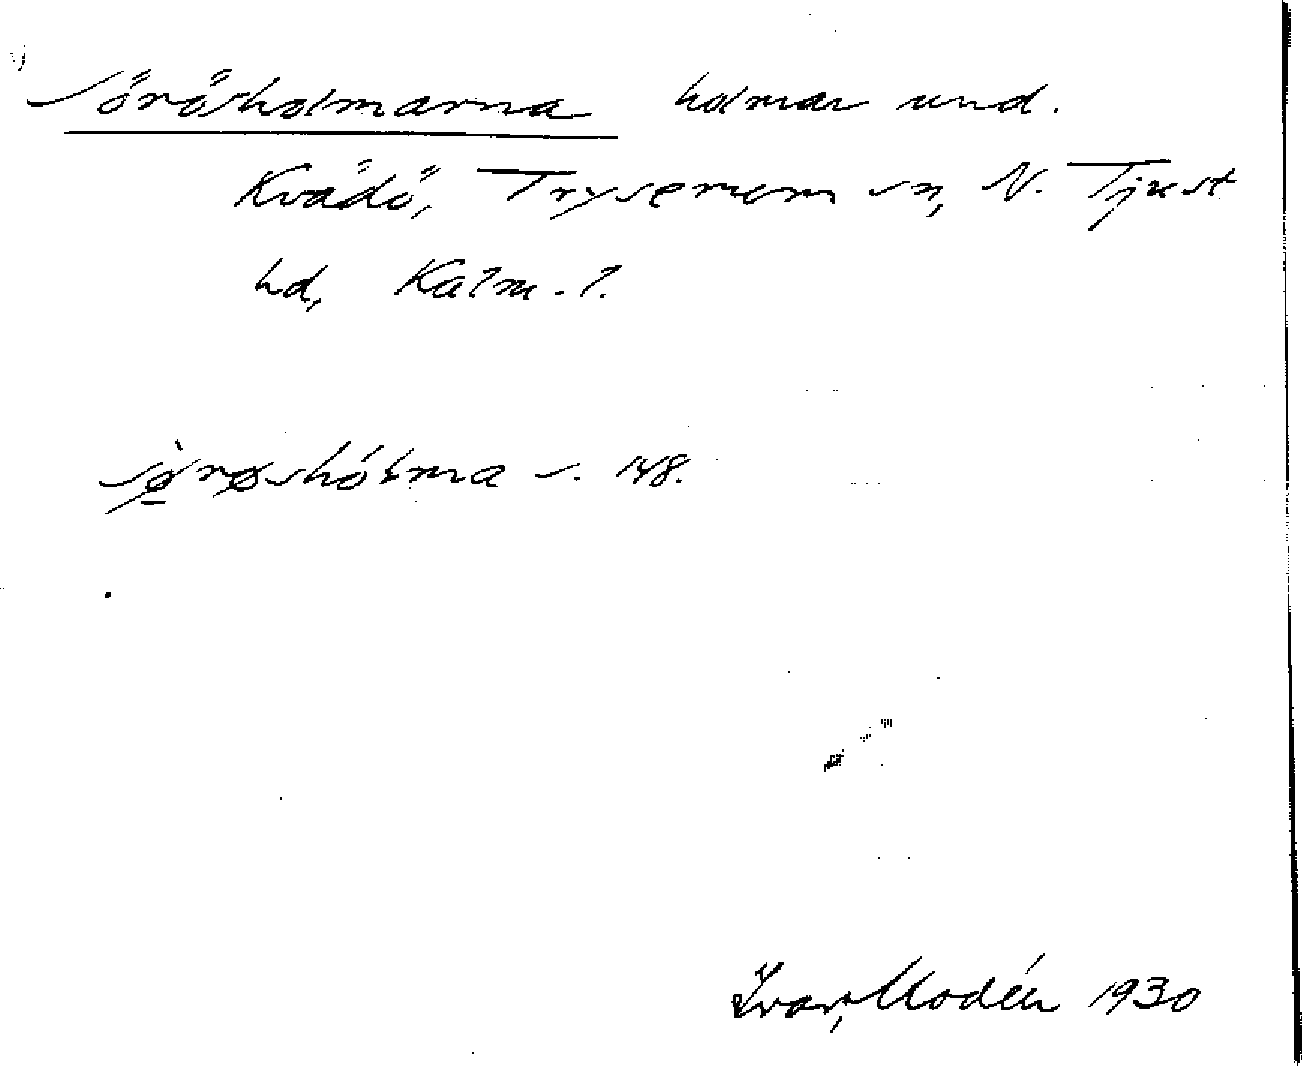 Söröholmarna holmar und.
Kvädö, Tryserum sn, N. Tjust
hd, Kalm. l.
s. 148.
Ivar Modéer 1930